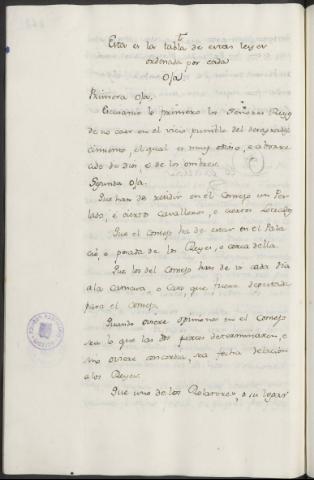 Esta es la tabla de estas leyes
ordenada por cada
oja
Primera oja.
Escusanse lo primero los Señores Reyes
de no caer en el vicio punible del desagrade
cimiento, el qual es muy odioso, e aborre
cido de Dios, e de los ombres.
Segunda oja.
Que han de residir en el Consejo un Per
lado, e ciertos cavalleros, e ciertos Letrados
Que el consejo ha de estar en el Pala
cio, o posada de los Reyes, o cerca della.
Que los del Consejo han de ir cada dia
a la camara, o casa que fuere deputada
para el Consejo.
Quando oviere opiniones en el Consejo
sea lo que las dos partes determinaren, e
sino oviere concordia, sea fecha relacion
a los Reyes.
Que uno de los Relatores, o su lugar